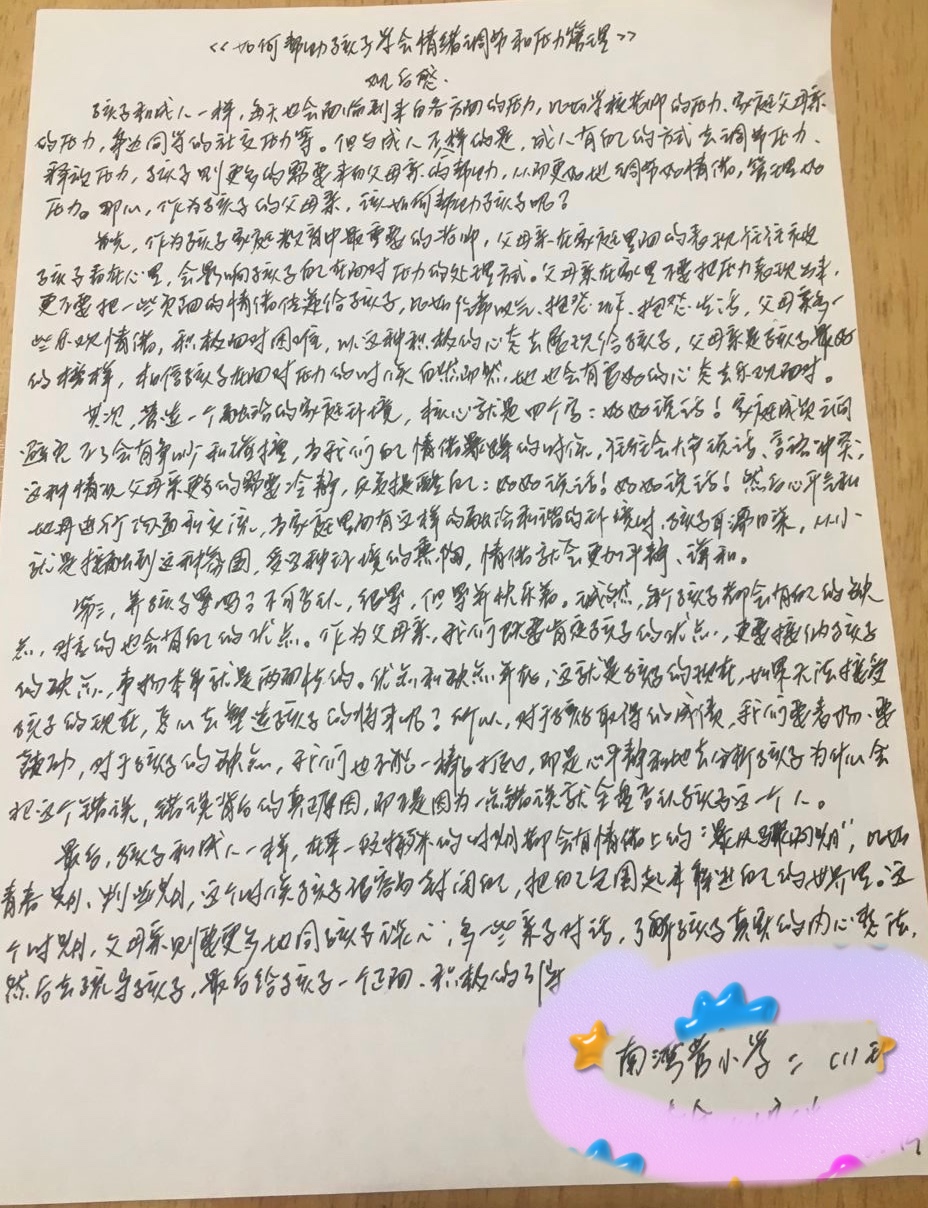 《如何帮助孩子学会情绪调节和压力管理》
观后感.
孩子和成人一样，每天也会面临到来自各方面的压力，比如学校老师的压力、家庭父母亲
的压力，身边同学的社交压力等。但与成人不一样的是，成人有自己的方式去调节压力、
释放压力，孩子则更多的需要来自父母亲的帮助，从而更好地调节好情绪，管理好
压力。那么，作为孩子的父母亲，该如何帮助孩子呢？
首先，作为孩子家庭教育中最重要的老师，父母亲在家庭里面的表现往往被
孩子看在心里，会影响孩子自己在面对压力的处理方式。父母亲在家里不要把压力表现出来，
更不要把一些负面的情绪传递给孩子，比如作常叹气、抱怨工作、抱怨生活，父母亲多一
些乐观情绪，积极面对困难，以这种积极的心态去展现给孩子，父母亲是孩子最好
的榜样，相信孩子在面对压力的时候自然而然，他也会有良好的心态去乐观面对。
其次，营造一个融洽的家庭环境，核心就是四个字：好好说话！家庭成员之间
避免不了会有争吵和碰撞，当我们自己情绪暴躁的时候，往往会大声说话、言语冲突，
这种情况父母亲更多的需要冷静，反复提醒自己：好好说话！好好说话！然后心平气和
地再进行沟通和交流，当家庭里面有这样的融洽和谐的环境时，孩子耳濡目染，从小
就是接触到这种氛围，受这种环境的熏陶，情绪就会更加平静、祥和。
第三，养孩子累吗？不可否认，很累，但累并快乐着。诚然，每个孩子都会有自己的缺
点，对应的也会有自己的优点。作为父母亲，我们既要肯定孩子的优点，更要接纳孩子
的缺点，事物本身就是两面性的。优点和缺点并存，这就是孩子的现在，如果无法接受
孩子的现在，何以去塑造孩子的将来呢？所以，对于孩子取得的成绩，我们要表扬、要
鼓励，对于孩子的缺点，我们也不能一棒子打死，而是心平静和地去分析孩子为什么会
犯这个错误，错误背后的真正原因，而不是因为一点错误就全盘否认孩子这一个人。
最后，孩子和成人一样，在某一段特殊的时期都会有情绪上的“暴风骤雨期”，比如
青春期、叛逆期，这个时候孩子很容易封闭自己，把自己包围起来躲进自己的世界里。这
个时期，父母亲则要更多地同孩子谈心，多一些亲子对话，了解孩子真实的内心想法，
然后去疏导孩子，最后给孩子一个正面、积极的引导
南湾营小学二（11）班